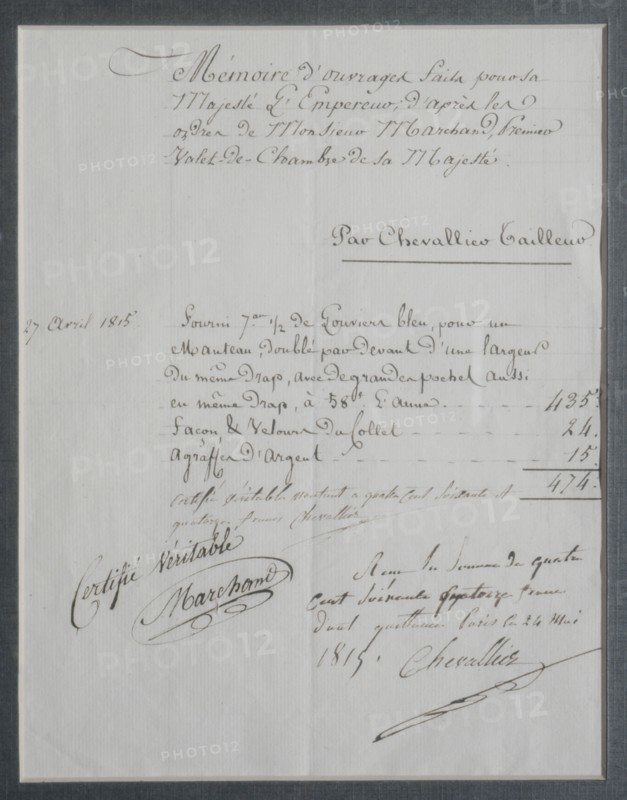 Mémoire d'ouvrages faits pour sa
Majesté L'Empereur, d'après les
ordres de Monsieur Marchand, Premier
Valet-de-Chambre de sa Majesté.
Par Chevallier Tailleur.
27 Avril 1815
Fourni 7 au 1/2 de Louviers bleu, pour un
Manteau, doublé par devant d'une largeur
du même Drap, avec de grandes poches aussi
en même Drap, à 58 f L'aune 435.
Façon & Velours du Collet 24.
Agraffes d'Argent 15.
474.
Certifié véritable montant a quatre Cent Soixante et
quatorze francs Chevallier
Certifié Véritable
Marchand
Recu la Somme de quatre
Cent Soixante quatorze francs
dont quittance Paris le 24 Mai
1815. Chevallier
PHOTO12